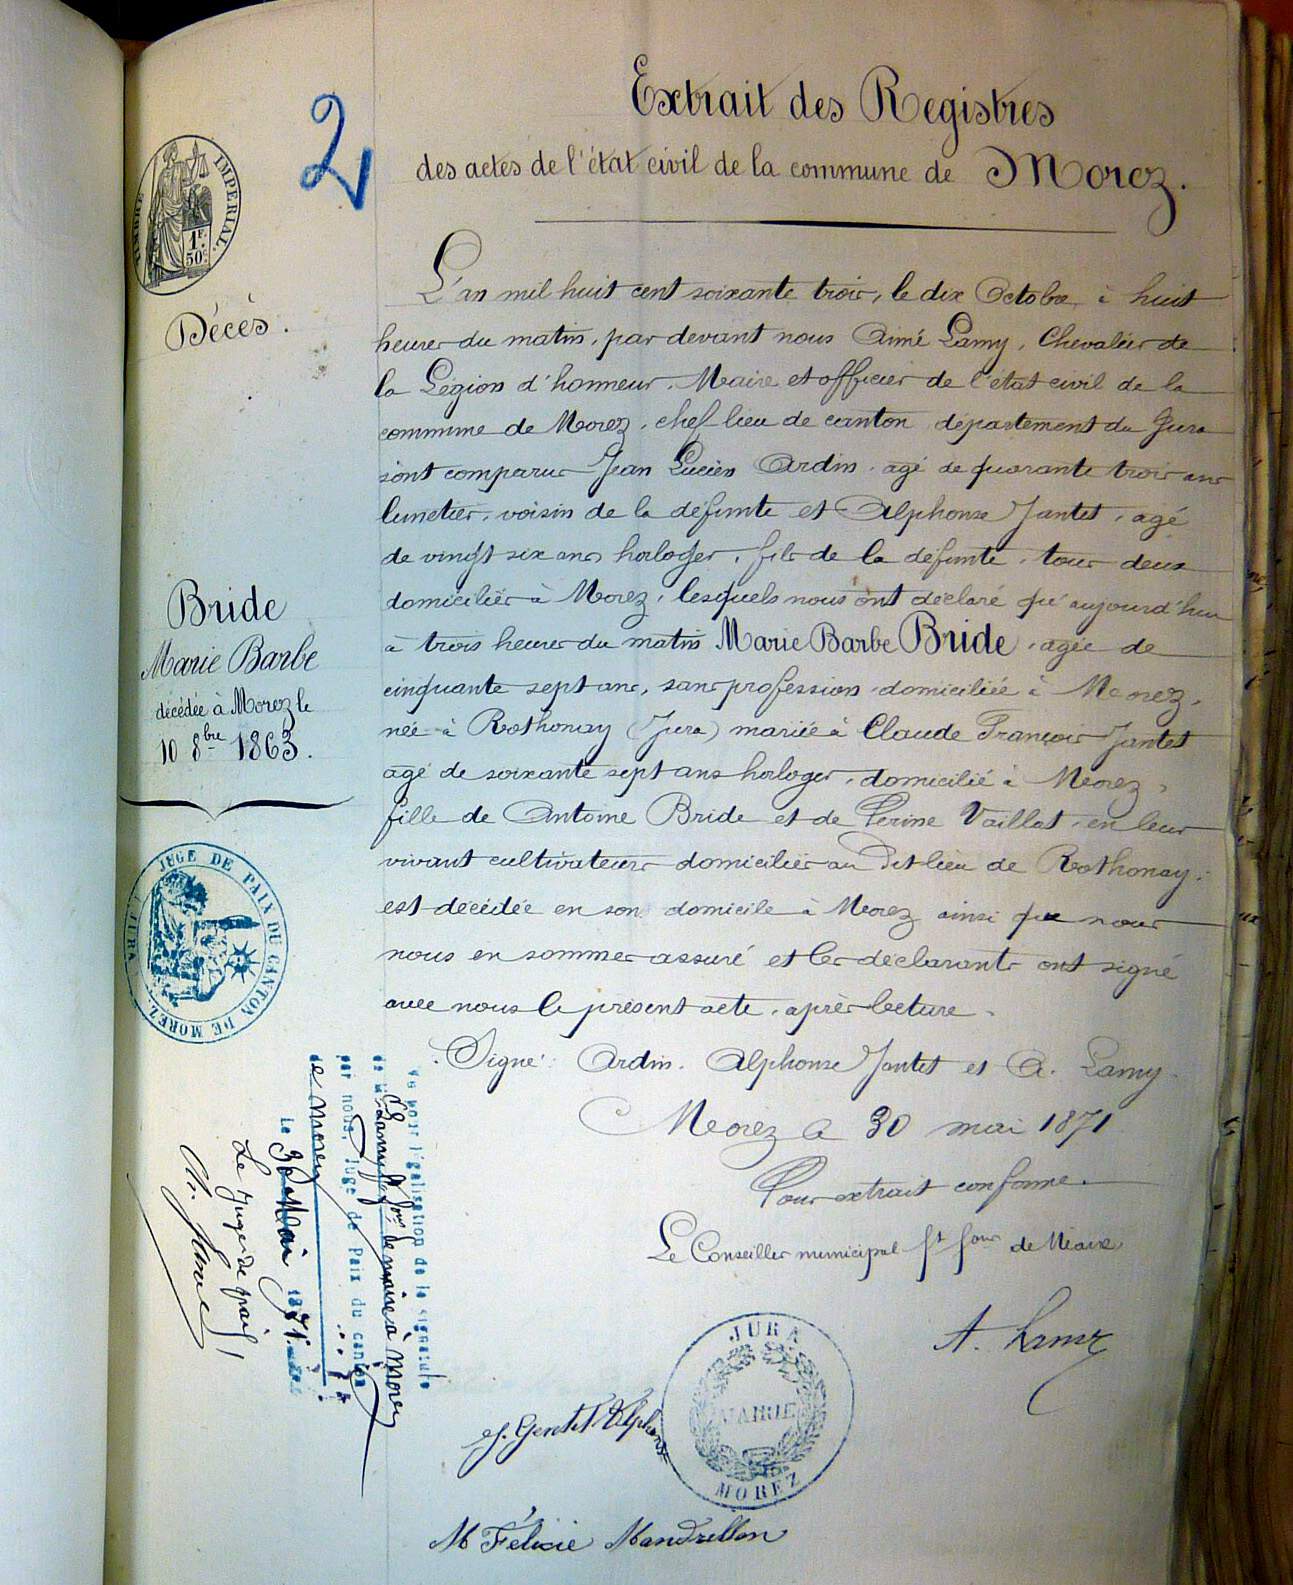 2
Extrait des Registres
des actes de l'état civil de la commune de Morez.
TIMBRE IMPERIAL
1F.
50c
Décès.
L'an mil huit cent soixante trois, le dix Octobre à huit
heures du matin, par devant nous Aimé Lamy, Chevalier de
la Légion d'honneur, Maire et officier de l'état civil de la
commune de Morez, chef lieu de canton département du Jura
sont comparus Jean Lucien Ardin, agé de quarante trois ans
lunetier, voisin de la défunte et Alphonse Jantet, agé
de vingt six ans horloger, fils de la défunte, tous deux
domiciliés à Morez, lesquels nous ont déclaré qu'aujourd'hui
à trois heures du matin Marie Barbe Bride, agée de
cinquante sept ans, sans profession domiciliée à Morez,
née à Rothonay (Jura) mariée à Claude François Jantet
agé de soixante sept ans horloger, domicilié à Morez,
fille de Antoine Bride et de Perine Vaillat, en leur
vivant cultivateurs domiciliés au dit lieu de Rothonay,
est décédée en son domicile à Morez ainsi que nous
nous en sommes assuré et les déclarants ont signé
avec nous le présent acte, après lecture.
Signé: Ardin. Alphonse Jantet et A. Lamy.
Morez le 30 mai 1871
Pour extrait conforme.
Le Conseiller municipal ft fons de Maire
A. Lamy
Bride
Marie Barbe
décédée à Morez le
10 8bre 1863.
JUGE DE PAIX DU CANTON DE MOREZ (JURA)
Vu pour légalisation de la signature
de M. Lamy ft fons de maire à Morez
par nous, Juge de Paix du canton
de Morez
Le 30 Mai 1871.
Le Juge de paix
JURA
MAIRIE
MOREZ
J. Gentet Alphonse
M Félicie Mandrillon